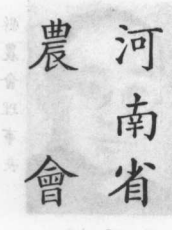 河南省
農會